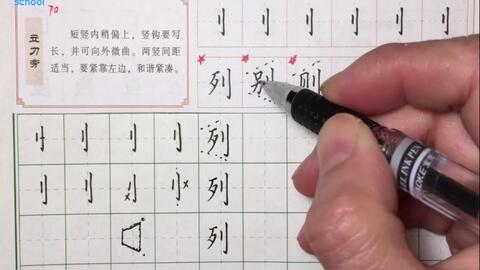 school
70
立刀旁
短竖内稍偏上，竖钩要写
长，并可向外微曲。两竖间距
适当，要紧靠左边，和谐紧凑。
刂 刂 刂 刂 刂 刂
列 别 前
刂 刂 刂 刂 列
刂 刂 刂 刂 列
列
GEL INK PEN